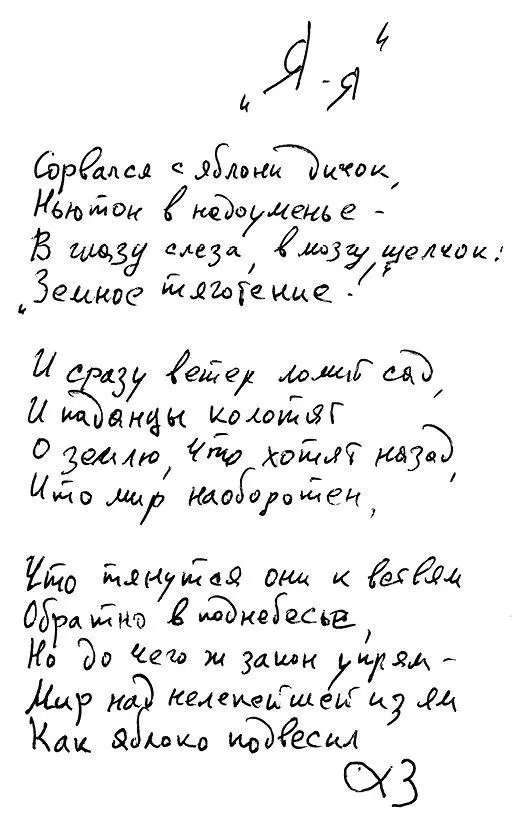 „Я-я“
Сорвался с яблони дичок,
Ньютон в недоуменье –
В глазу слеза, в мозгу щелчок:
„Земное тяготение!“
И сразу ветер ломит сад,
И паданцы колотят
О землю, что хотят назад,
Что мир наоборотен,
Что тянутся они к ветвям
Обратно в поднебесье,
Но до чего ж закон упрям –
Мир над нелепейшей из ям
Как яблоко подвесил